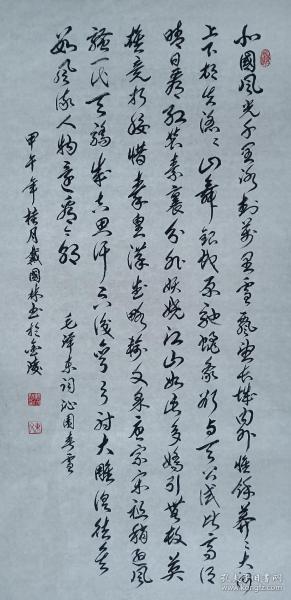 北國風光千里冰封萬里雪飄望長城内外惟餘莽々大河
上下頓失滔々山舞銀蛇原馳蠟象欲与天公試比高須
晴日看紅裝素裹分外妖嬈江山如此多嬌引無數英
雄競折腰惜秦皇漢武略輸文采唐宗宋祖稍遜風
騷一代天驕成吉思汗只識彎弓射大雕俱往矣
數風流人物還看今朝
毛澤東詞沁園春雪
甲午年桂月戴國林書於金陵
孔夫子旧书网